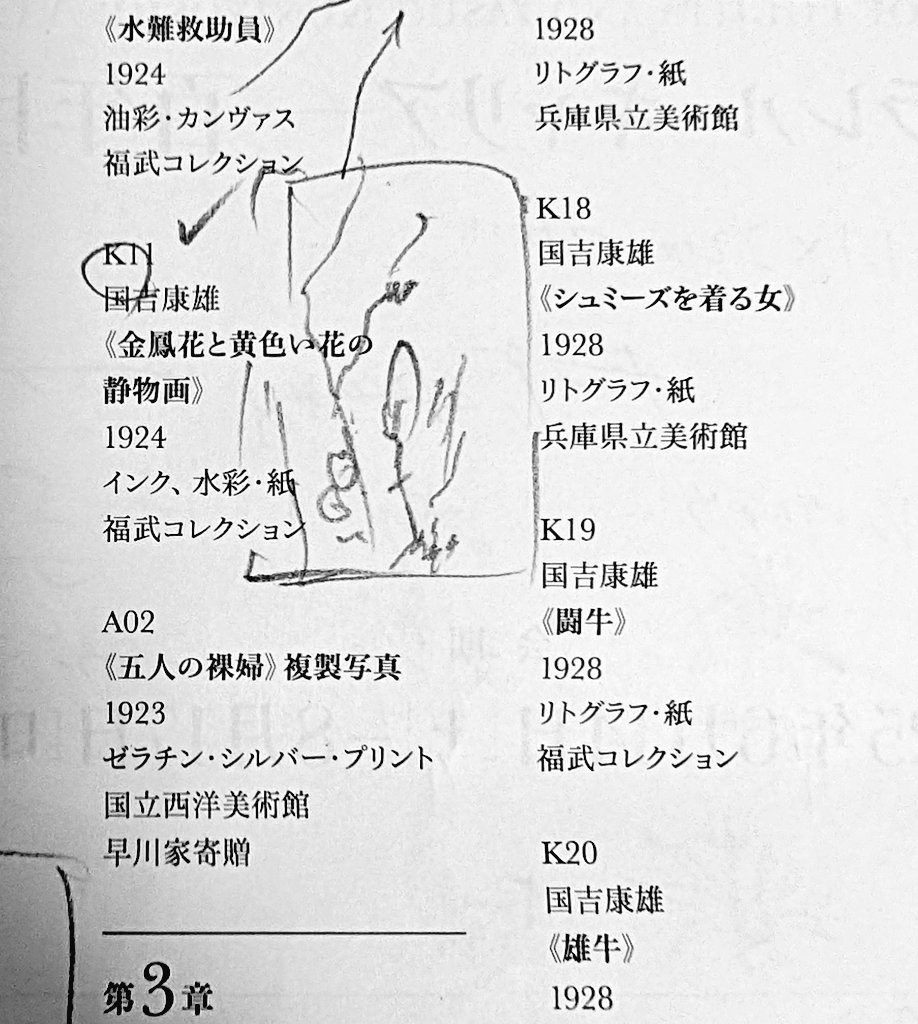 《水難救助員》
1924
油彩・カンヴァス
福武コレクション
K11
国吉康雄
《金鳳花と黄色い花の
静物画》
1924
インク、水彩・紙
福武コレクション
A02
《五人の裸婦》複製写真
1923
ゼラチン・シルバー・プリント
国立西洋美術館
早川家寄贈
第3章
1928
リトグラフ・紙
兵庫県立美術館
K18
国吉康雄
《シュミーズを着る女》
1928
リトグラフ・紙
兵庫県立美術館
K19
国吉康雄
《闘牛》
1928
リトグラフ・紙
福武コレクション
K20
国吉康雄
《雄牛》
1928